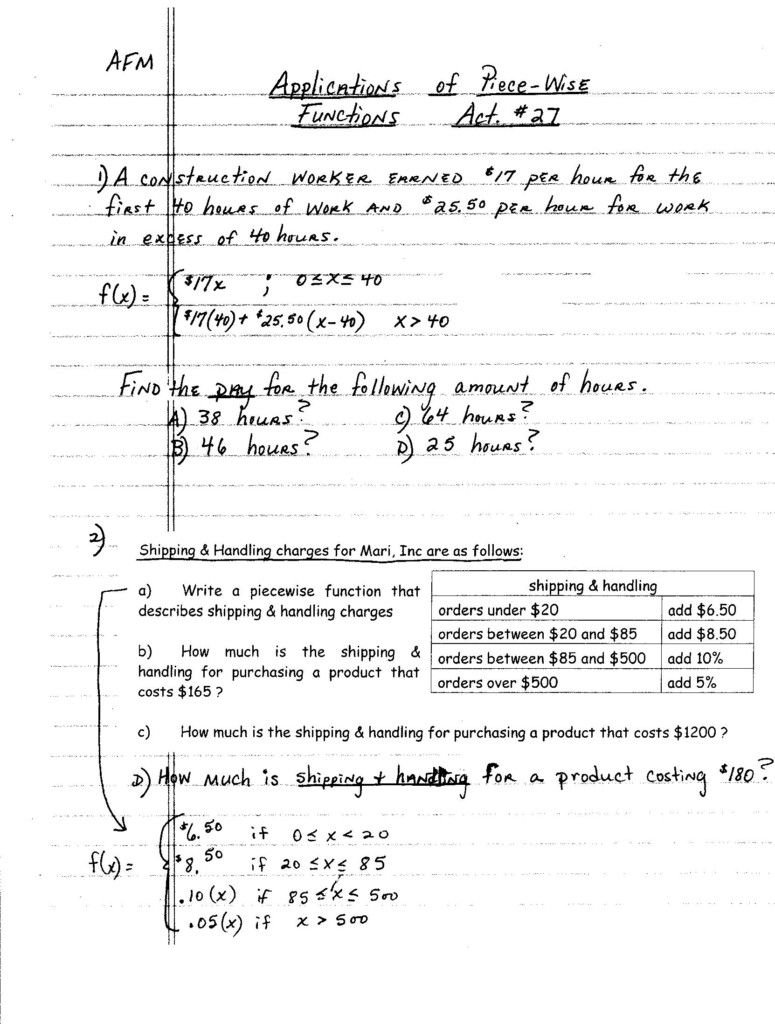 AFM
Applications of Piece-Wise
Functions Act. #27
1) A construction worker earned $17 per hour for the
first 40 hours of work and $25.50 per hour for work
in excess of 40 hours.
f(x) = { $17x ; 0 ≤ x ≤ 40
$17(40) + $25.50(x-40) x > 40
Find the pay for the following amount of hours.
A) 38 hours? C) 64 hours?
B) 46 hours? D) 25 hours?
2)
Shipping & Handling charges for Mari, Inc are as follows:
a) Write a piecewise function that
describes shipping & handling charges
b) How much is the shipping &
handling for purchasing a product that
costs $165 ?
shipping & handling
orders under $20 add $6.50
orders between $20 and $85 add $8.50
orders between $85 and $500 add 10%
orders over $500 add 5%
c) How much is the shipping & handling for purchasing a product that costs $1200 ?
D) How much is shipping + handling for a product costing $180?
f(x) = { $6.50 if 0 ≤ x < 20
$8.50 if 20 ≤ x ≤ 85
.10(x) if 85 ≤ x ≤ 500
.05(x) if x > 500